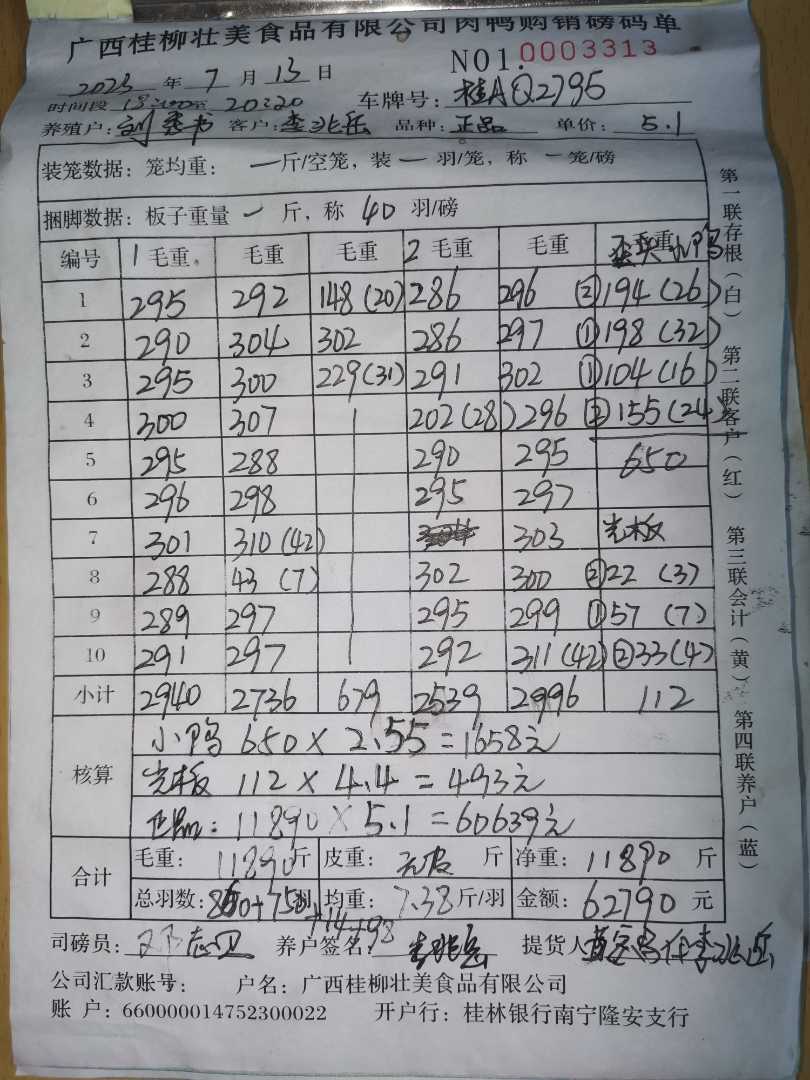 广西桂柳壮美食品有限公司肉鸭购销磅码单
NO1.0003313
2023 年 7 月 13 日
时间段 至 20:20 车牌号: 桂AQ2795
养殖户: 刘 书 客户: 李兆岳 品种: 正品 单价: 5.1
装笼数据: 笼均重: 一斤/空笼, 装一羽/笼, 称一笼/磅
捆脚数据: 板子重量 一 斤, 称 40 羽/磅
编号 1毛重 毛重 毛重 2毛重 毛重 毛重 小鸭
1 295 292 148(20) 286 296 ②194(26)
2 290 304 302 286 297 ①198(32)
3 295 300 229(31) 291 302 ①104(16)
4 300 307 202(28) 296 ②155(24)
5 295 288 290 295 650
6 296 298 295 297
7 301 310(42) 303 光板
8 288 43(7) 302 300 ②22(3)
9 289 297 295 299 ①57(7)
10 291 297 292 311(42) ②33(4)
小计 2940 2736 679 2539 2996 112
核算 小鸭 650×2.55=1658元
光板 112×4.4=493元
正品: 11890×5.1=60639元
合计 毛重: 11890斤 皮重: 无皮 斤 净重: 11890 斤
总羽数: 860+750羽 均重: 7.38斤/羽 金额: 62790 元
+14+98
司磅员: 邓志卫 养户签名: 李兆岳 提货人 李兆岳
公司汇款账号: 户名: 广西桂柳壮美食品有限公司
账 户: 660000014752300022 开户行: 桂林银行南宁隆安支行
第一联存根(白) 第二联客户(红) 第三联会计(黄) 第四联养户(蓝)